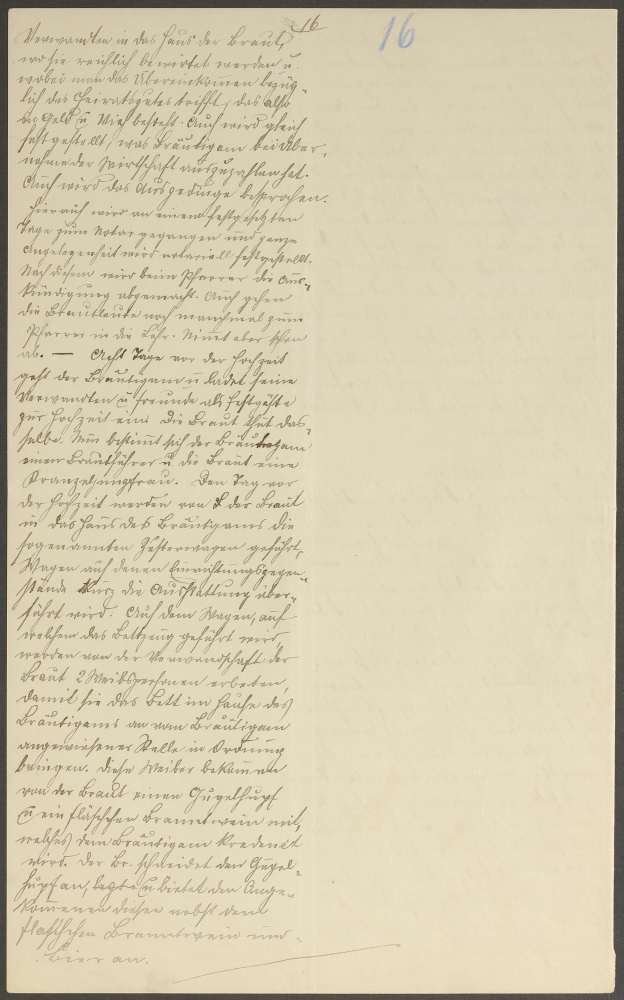 16
16
Verwandten in das Haus der Braut,
wo sie reichlich bewirtet werden u.
wobei man das Übereinkommen bezüg-
lich des Heiratsgutes trifft, das also
aus Geld u. Vieh besteht. Auch wird gleich
festgestellt, was Bräutigam bei Über-
nahme der Wirtschaft auszuzahlen hat.
Auch wird das Ausgedinge besprochen.
Hierauf wird an einem festgesetzten
Tage zum Notar gegangen und ganze
Angelegenheit wird notariell festgestellt.
Nach diesem wird beim Pfarrer die An-
kündigung abgemacht. Auch gehen
die Brautleute noch manchmal zum
Pfarrer in die Lehr. Nimt aber schon
ab. — Acht Tage vor der Hochzeit
geht der Bräutigam u. ladet seine
Verwandten u. Freunde als Festgäste
zur Hochzeit ein. Die Braut thut das-
selbe. Nun bestimt sich der Bräutigam
einen Brautführer u. die Braut eine
Kranzeljungfrau. Den Tag vor
der Hochzeit werden von der Braut
in das Haus des Bräutigams die
sogenannten Zisterwagen geführt,
Wagen auf denen Einrichtungsgegen-
stände kurz die Ausstattung über-
führt wird. Auf dem Wagen, auf
welchem das Bettzeug geführt wird,
werden von der Verwandschaft der
Braut 2 Weibspersonen erbeten,
damit sie das Bett im Hause des
Bräutigams an vom Bräutigam
angewiesener Stelle in Ordnung
bringen. Diese Weiber bekommen
von der Braut einen Gugelhupf
u. ein Fläschchen Branntwein mit,
welches dem Bräutigam kredenzt
wird. Der Br. schneidet den Gugel-
hupf an, u. bietet den Ange-
kommenen diesen nebst dem
Fläschchen Branntwein und
Bier an.